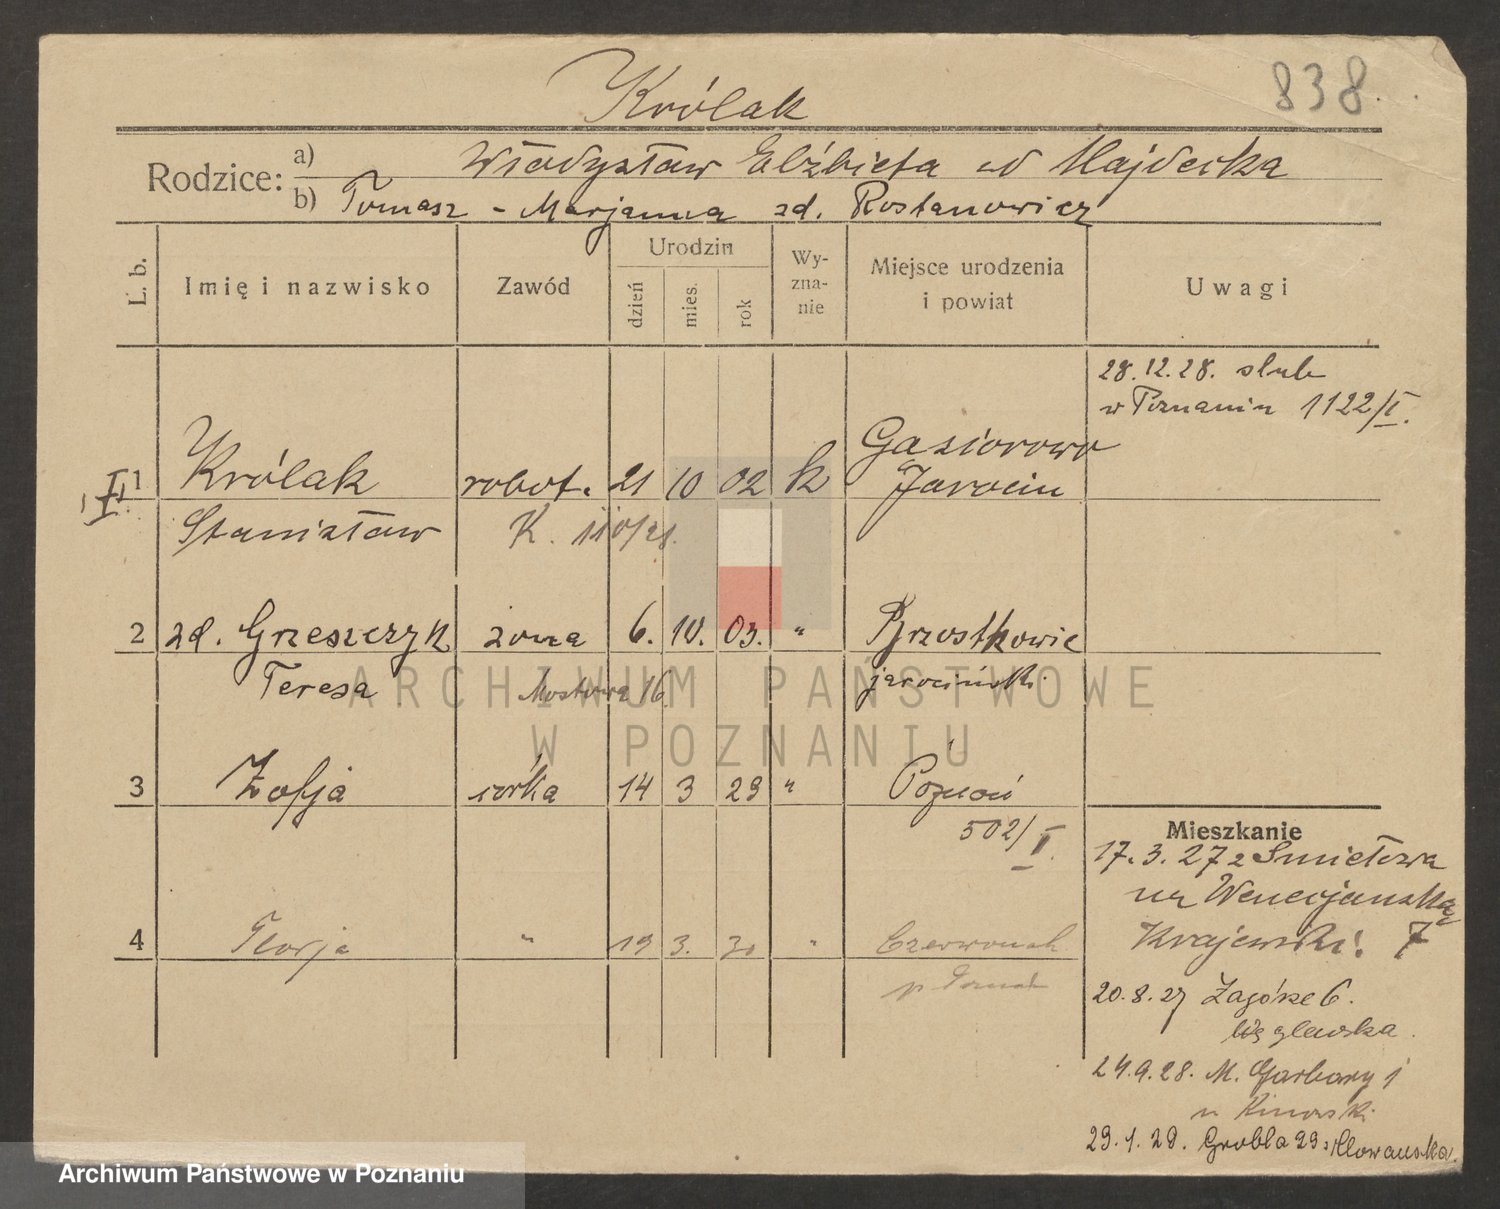 838.
Królak
Rodzice:
a) Władysław Elżbieta zd Majdecka
b) Tomasz - Marjanna zd. Rostanowicz
L. b.
Imię i nazwisko
Zawód
Urodzin
dzień
mies.
rok
Wy-
zna-
nie
Miejsce urodzenia
i powiat
Uwagi
28.12.28. slub
w Poznaniu 1122/I.
1 Królak robot. 21 10 02 k Gasiorowo
Jarocin
Stanisław K. 110/28.
2 zd. Grzeszczyk żona 6. 10. 03. " Brzostkowie
Teresa Mostowa 16 jarociński.
3 Zofja córka 14 3 29 " Poznań
502/I.
4 " 19 3. 30 " Czerwonak
p
Mieszkanie
17.3.27 z Smiełowa
Wenecjańska
Krajewski. 7
20.8.27 Zagórze 6.
24.9.28. M. Garbary 1
29.1.29. Grobla 29
ARCHIWUM PAŃSTWOWE
W POZNANIU
Archiwum Państwowe w Poznaniu